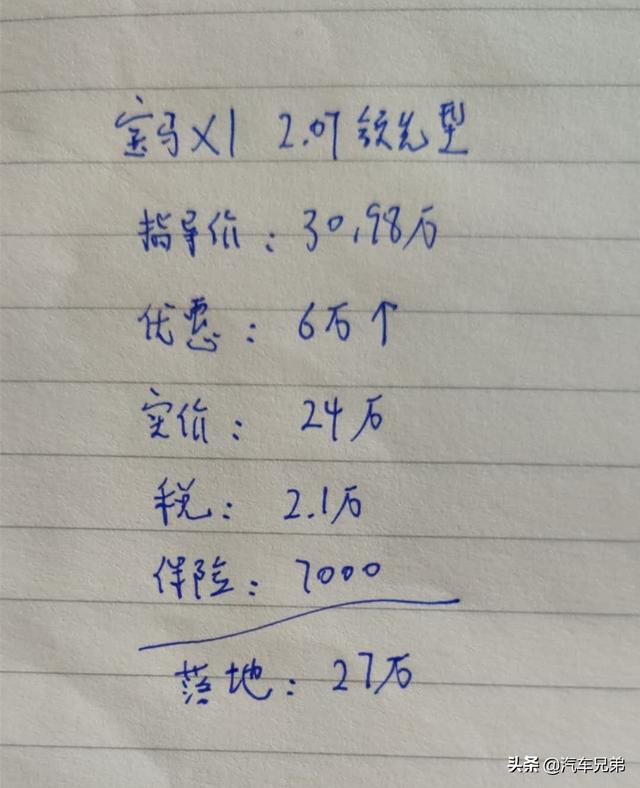 宝马X1 2.0T 领先型
指导价：30.98万
优惠：6万↑
实价：24万
税：2.1万
保险：7000
落地：27万
头条 @汽车兄弟